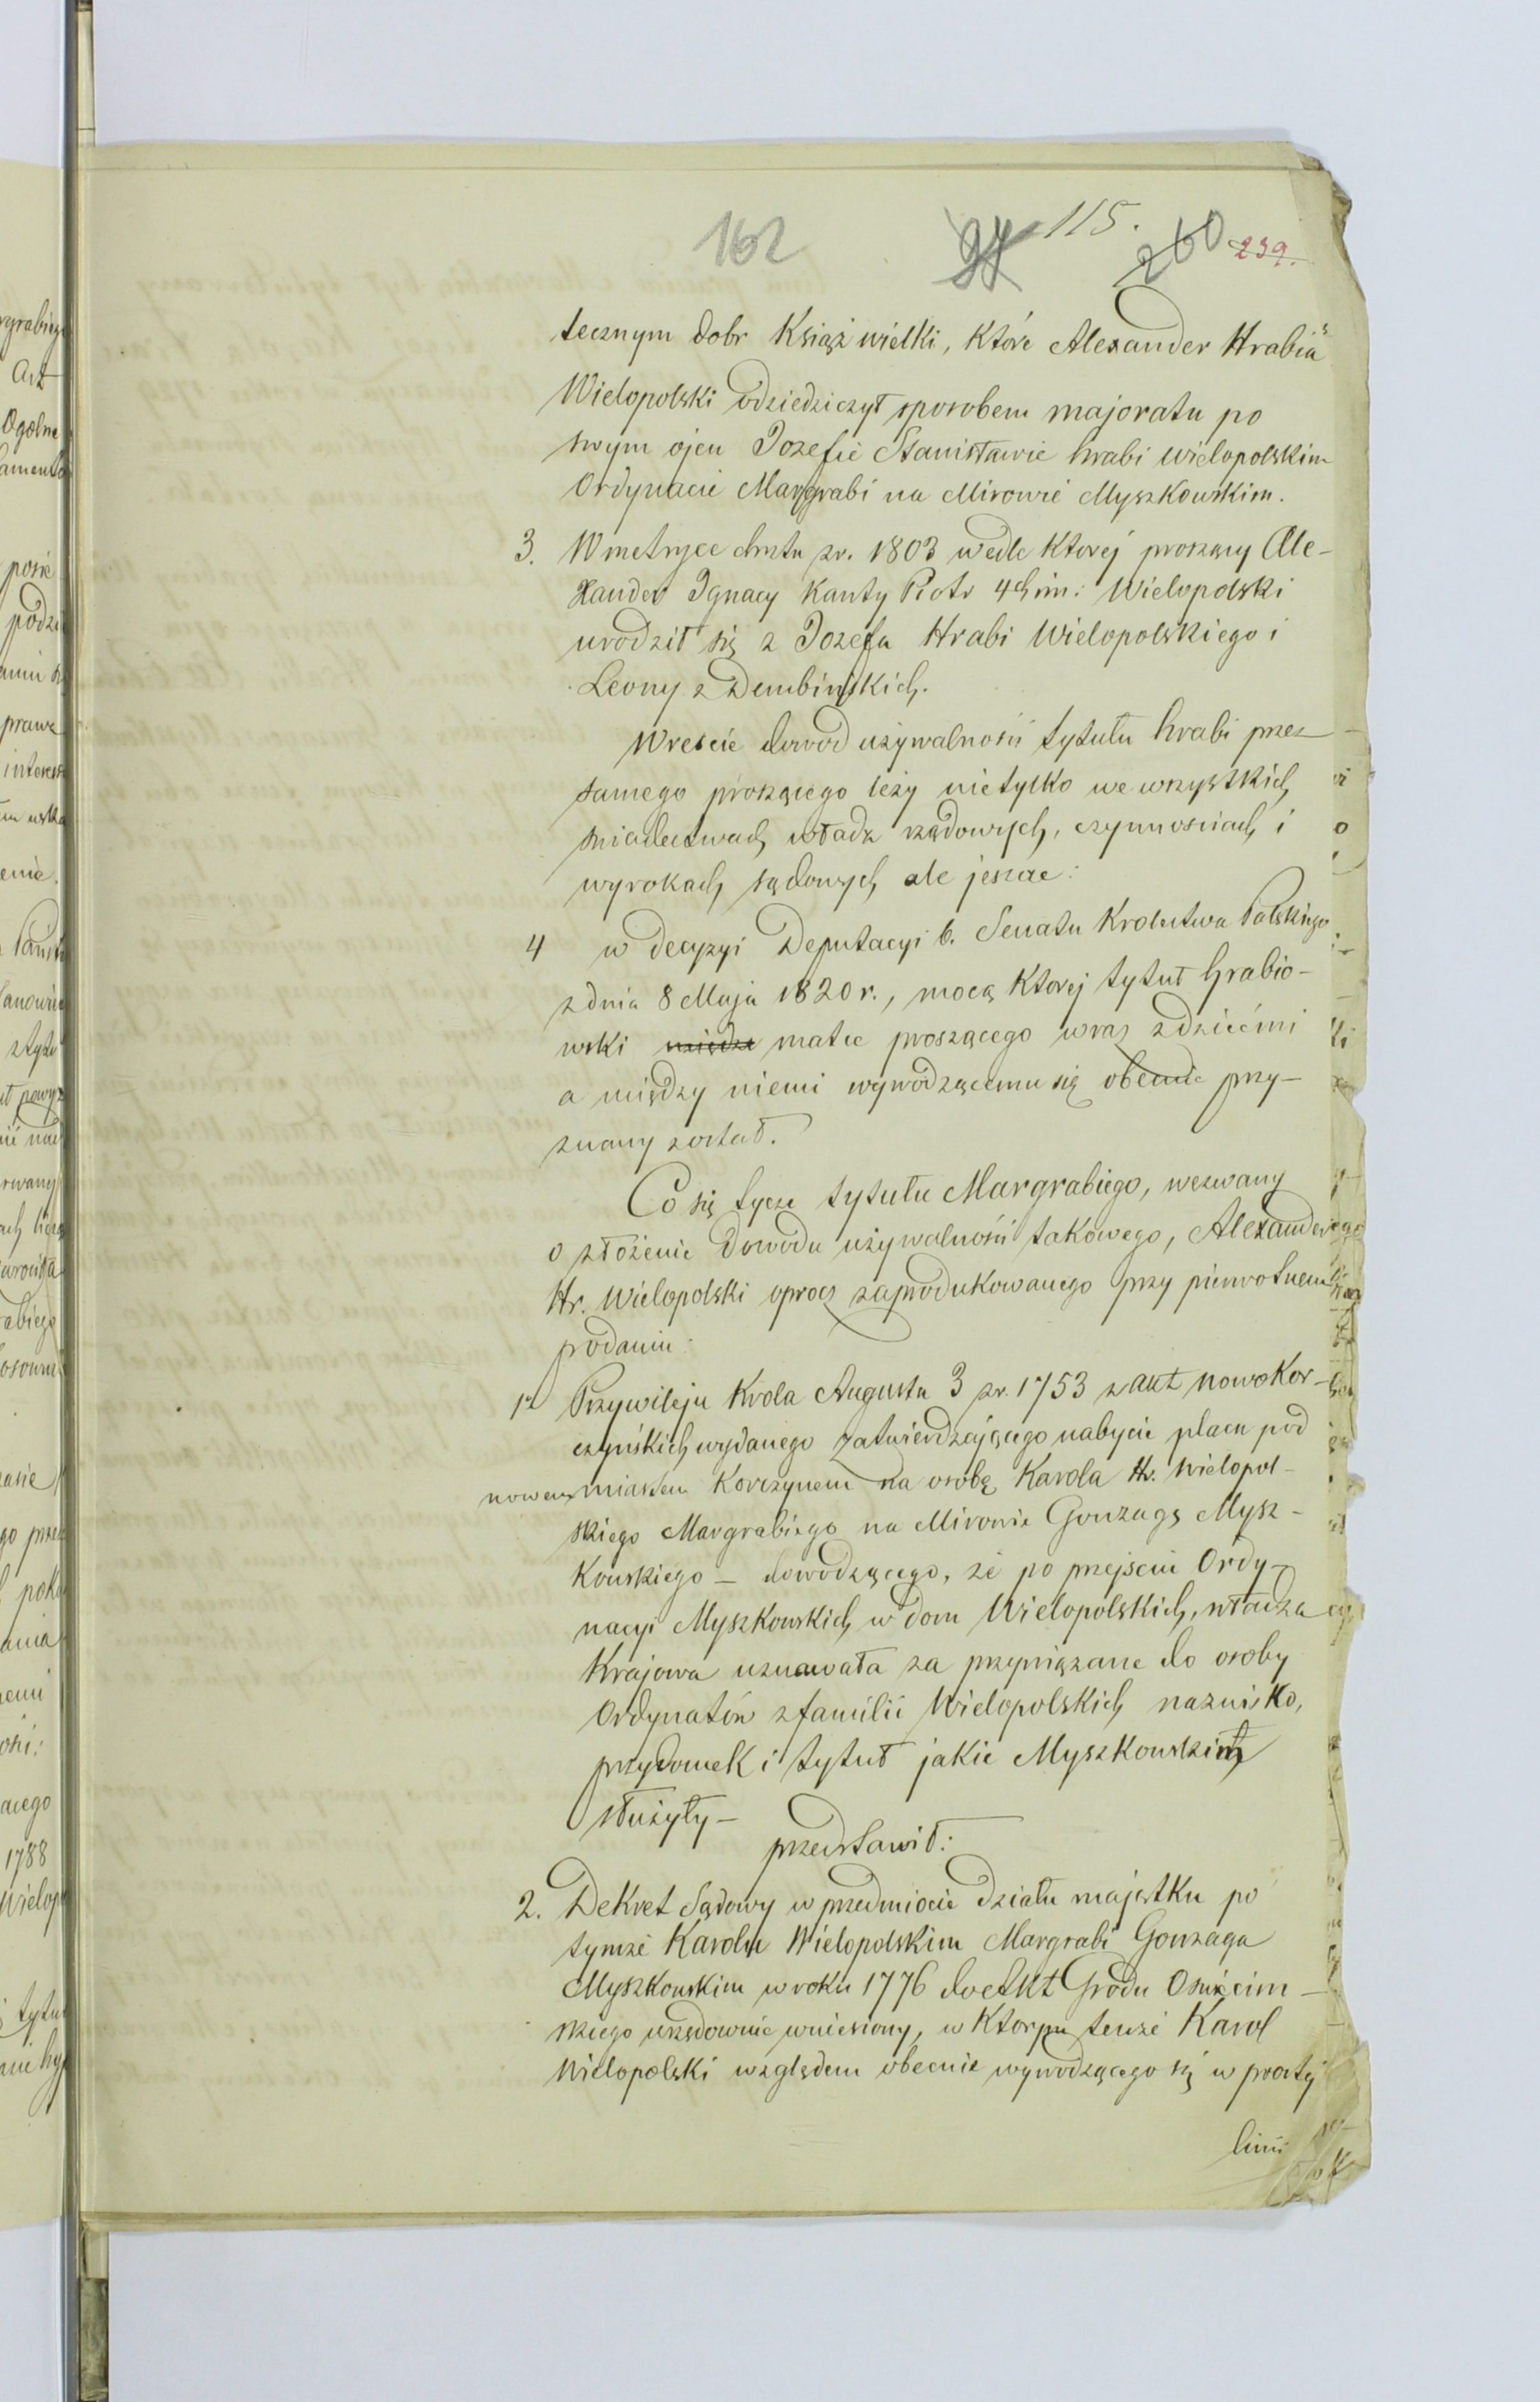 162 115. 260 239.
tecznym dobr Książ wielki, które Alexander Hrabia
Wielopolski odziedziczył sposobem majoratu po
swym ojcu Jozefie Stanisławie hrabi wielopolskim
Ordynacie Margrabi na Mirowie Myszkowskim.
3. W metryce chrztu z r. 1803 wedle ktorej proszący Ale-
xander Ignacy Kanty Piotr 4ch im: Wielopolski
urodził się z Jozefa Hrabi Wielopolskiego i
Leony z Dembińskich.
Wreście dowod używalności tytułu hrabi przez
samego proszącego leży nietylko we wszystkich
świadectwach władz rządowych, czynnościach i
wyrokach sądowych ale jeszcze:
4 w decyzyi Deputacyi b. Senatu Krolestwa Polskiego
z dnia 8 Maja 1820 r., mocą ktorej tytuł hrabio-
wski matce proszącego wraz z dziećmi
a między niemi wywodzącemu się obecnie przy-
znany został.
Co się tycze tytułu Margrabiego, wezwany
o złożenie dowodu używalności takowego, Alexander
Hr. Wielopolski oprocz zaprodukowanego przy pierwotnem
podaniu:
1o Przywileju Krola Augusta 3 z r. 1753 z akt nowokor-
czyńskich wydanego zatwierdzającego nabycie placu pod
nowem miastem Korczynem na osobę Karola Hr. Wielopol-
skiego Margrabiego na Mirowie Gonzagę Mysz-
kowskiego – dowodzącego, że po przejściu Ordy-
nacyi Myszkowskich w dom Wielopolskich, władza
Krajowa uznawała za przywiązane do osoby
Ordynatów z familii Wielopolskich nazwisko,
przydomek i tytuł jakie Myszkowskim
służyły –
przedstawił:
2. Dekret Sądowy w przedmiocie działu majątku po
tymże Karolu Wielopolskim Margrabi Gonzaga
Myszkowskim w roku 1776 do Akt Grodu Oswiecim-
skiego urzędownie wniesiony, w ktorym tenże Karol
Wielopolski względem obecnie wywodzącego się w prostej
linii